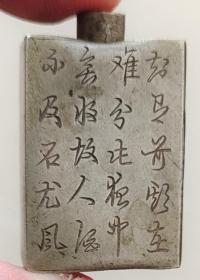 知有前期在
難分此夜中
無將故人酒
不及石尤風